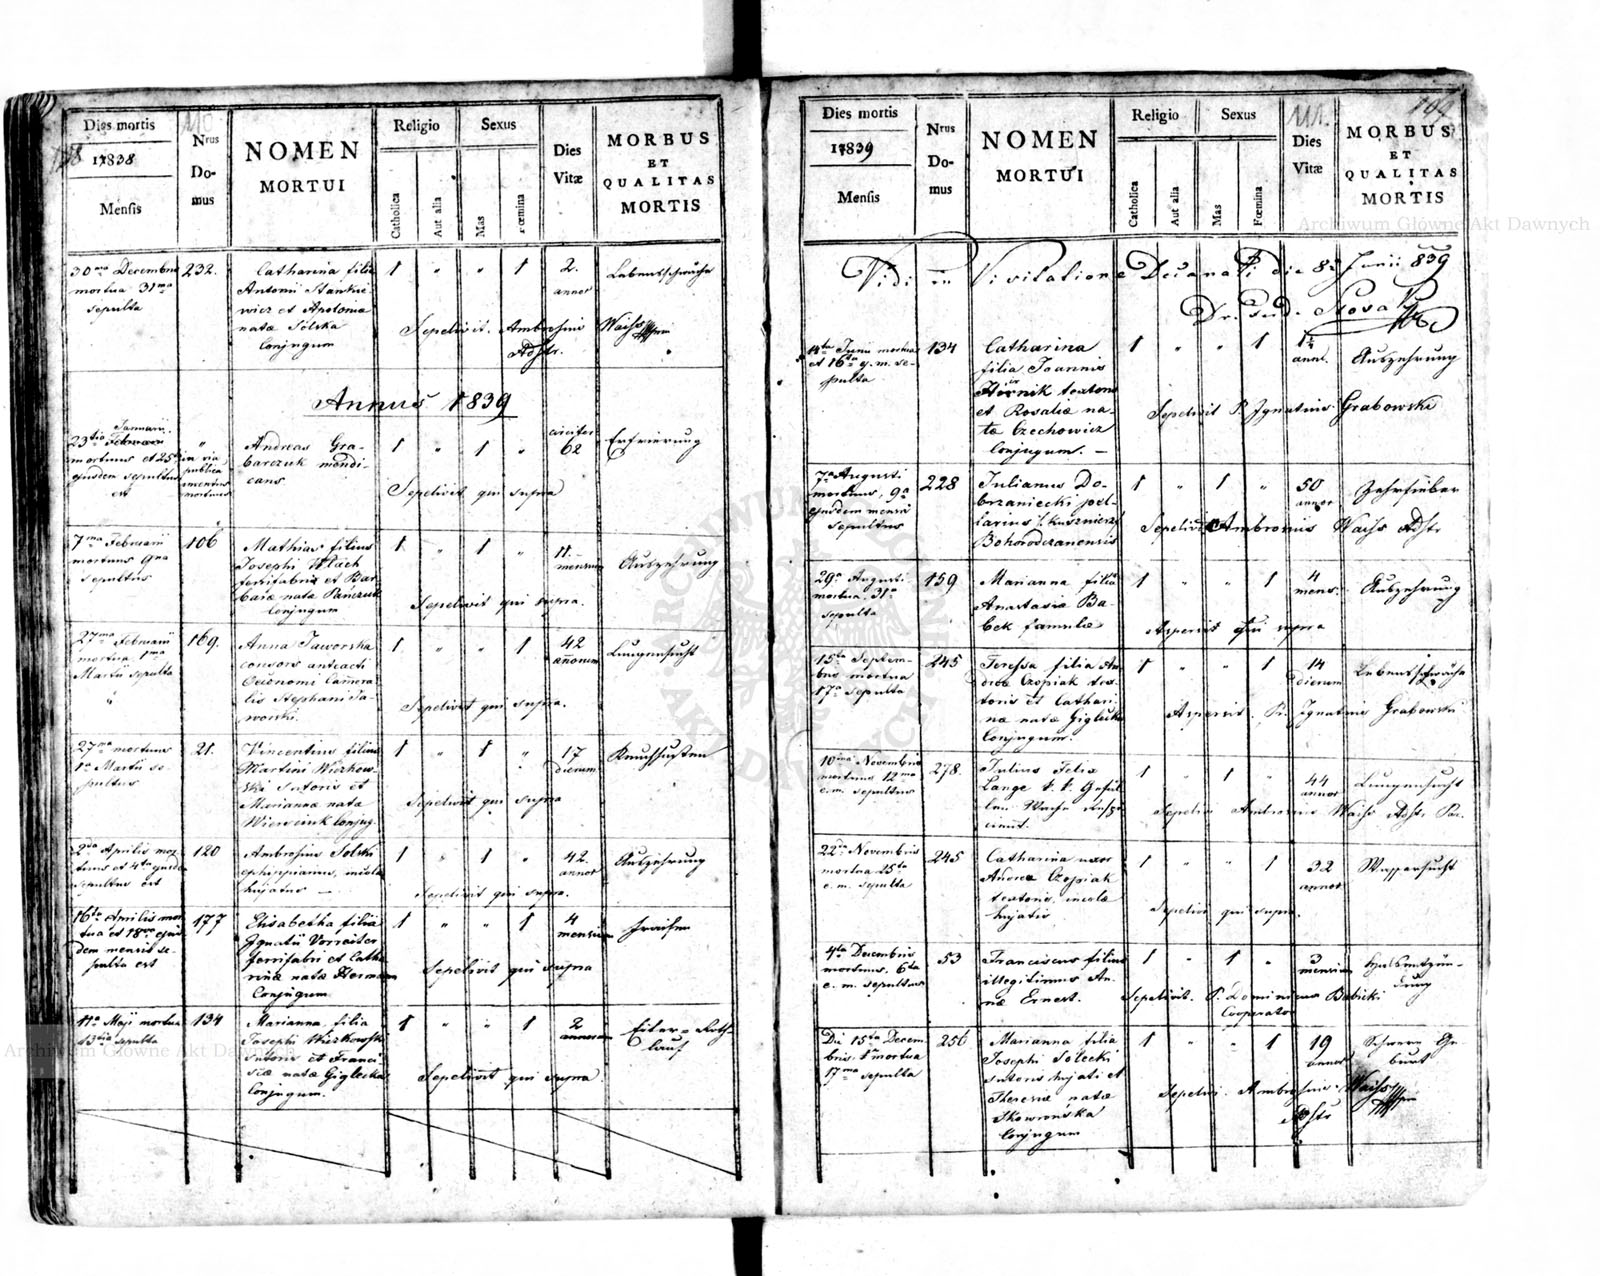 Dies mortis
1838
Mensis
Nrus
Do-
mus
NOMEN
MORTUI
Religio
Catholica
Aut alia
Sexus
Mas
Fœmina
Dies
Vitæ
MORBUS
ET
QUALITAS
MORTIS
30ma Decembris
mortua 31ma
sepulta
232.
Catharina filia
Antonii Stankie
wicz et Apolonia
natæ Solska
Conjugum
1 " " 1
2.
annor
Lebensschwäche
Sepelivit. Ambrosius Waiss
Adstr.
Annus 1839
Januarii
23tio
mortuus et 25ta
ejusdem sepultus
est
"
in via
publica
inventus
mortuus
Andreas Gra-
barczuk mendi-
cans
1 " 1 "
circiter
62
Erfrierung
Sepelivit qui supra
7ma Februarii
mortuus 9na
sepultus
106
Mathias filius
Josephi Wlach
ferrifabri et Bar
baræ nata Panczuk
Conjugum
1 " 1 "
11.
mensium
Auszehrung
Sepelivit qui supra.
27ma Februarii
mortua 1ma
Martii sepulta
"
169.
Anna Jaworska
consors anteacti
Oeconomi Camera
lis Stephani Ja-
worski.
1 " " 1
42
annorum
Lungensucht
Sepelivit qui supra.
27ma mortuus
1a Martii se-
pultus
21.
Vincentius filius
Martini Wiezkow-
ski Sutoris et
Marianna nata
Conjug.
1 " 1 "
17
dierum
Keuchhusten
Sepelivit qui supra
2da Aprilis mor
tuus et 4ta ejusd
sepultus est
120
Ambrosius Solski
ephippiarius, incola
hujatus —
1 " 1 "
42.
annor
Auszehrung
Sepelivit qui supra.
16ta Aprilis mor
tua et 18va ejus
dem mensis se-
pulta est
177
Elisabetha filia
Ignatii Vorreiter
ferrifabri et Catha
rinæ natæ Herman
Conjugum
1 " " 1
4
mensium
Fraisen
Sepelivit qui supra
11a Maji mortua
13tia sepulta
134
Marianna filia
Josephi Wiezkowski
sutoris et Franci
scæ natæ Giglecka
Conjugum.
1 " " 1
2
annorum
Eiter-Roth
lauf
Sepelivit qui supra
Dies mortis
1839
Mensis
Nrus
Do-
mus
NOMEN
MORTUI
Religio
Catholica
Aut alia
Sexus
Mas
Fœmina
Dies
Vitæ
MORBUS
ET
QUALITAS
MORTIS
Vidi in Visitatione Decanali die 8 Junii 839
14ta Junii mortua
et 16ta ej. m. se-
pulta
134
Catharina
filia Joannis
Hornik textoris
et Rosaliæ na-
tæ Czechowicz
Conjugum. —
1 " " 1
annl.
Auszehrung
Sepelivit P. Ignatius Grabowski
7a Augusti
mortuus, 9a
ejusdem mensis
sepultus
228
Julianus Do-
brzaniecki pel-
larius
Bohorodczanensis
1 " 1 "
50
annor
Zehrfieber
Sepelivit Ambrosius Waiss Adstr
29a Augusti
mortua, 31a
sepulta
159
Marianna filia
Anastasiæ Ba-
bek famulæ
1 " " 1
4
mens.
Auszehrung
Aspersit qui supra
15ta Septem-
bris mortua
17a sepulta
245
Teressa filia An
dreæ Czopiak tex-
toris et Cathari-
næ natæ Giglecka
Conjugum.
1 " " 1
14
dierum
Lebensschwäche
Aspersit Pr. Ignatius Grabowski
10ma Novembris
mortuus 12ma
e.m. sepultus
278.
Julius Felix
Lange k. k. Gefäl
len Wache
1 " 1 "
44
annor
Lungensucht
Sepelivi Ambrosius Waiss Adstr. Par.
22a Novembris
mortua 25ta
e. m. sepulta
245
Catharina uxor
Andreæ Czopiak
textoris, incola
hujatis
1 " " 1
32
annor
Wassersucht
Sepelivi qui supra.
4ta Decembris
mortuus, 6ta
e. m. sepultus
53
Franciscus filius
illegitimus An-
næ Ernest.
1 " 1 "
3
mensium
Halsentzün-
dung
Sepelivit. P. Dominicus Babicki
Cooperator
Die 15ta Decem
bris mortua
17ma sepulta
256
Marianna filia
Josephi Solecki
sutoris hujatis et
Theresiæ natæ
Skowrońska
Conjugum
1 " " 1
19
annor
Schwere Ge
burt
Sepelivi. Ambrosius Waiss
Adstr
Archiwum Główne Akt Dawnych
Archiwum Główne Akt Dawnych
ARCHIWUM GŁÓWNE AKT DAWNYCH